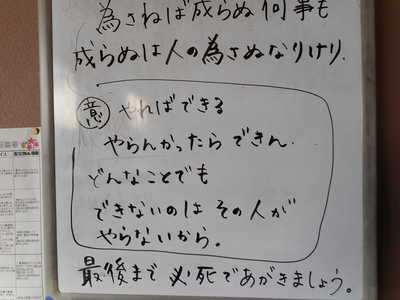 為さねば成らぬ何事も
成らぬは人の為さぬなりけり.
意 やればできる
やらんかったらできん.
どんなことでも
できないのはその人が
やらないから。
最後まで必死であがきましょう。